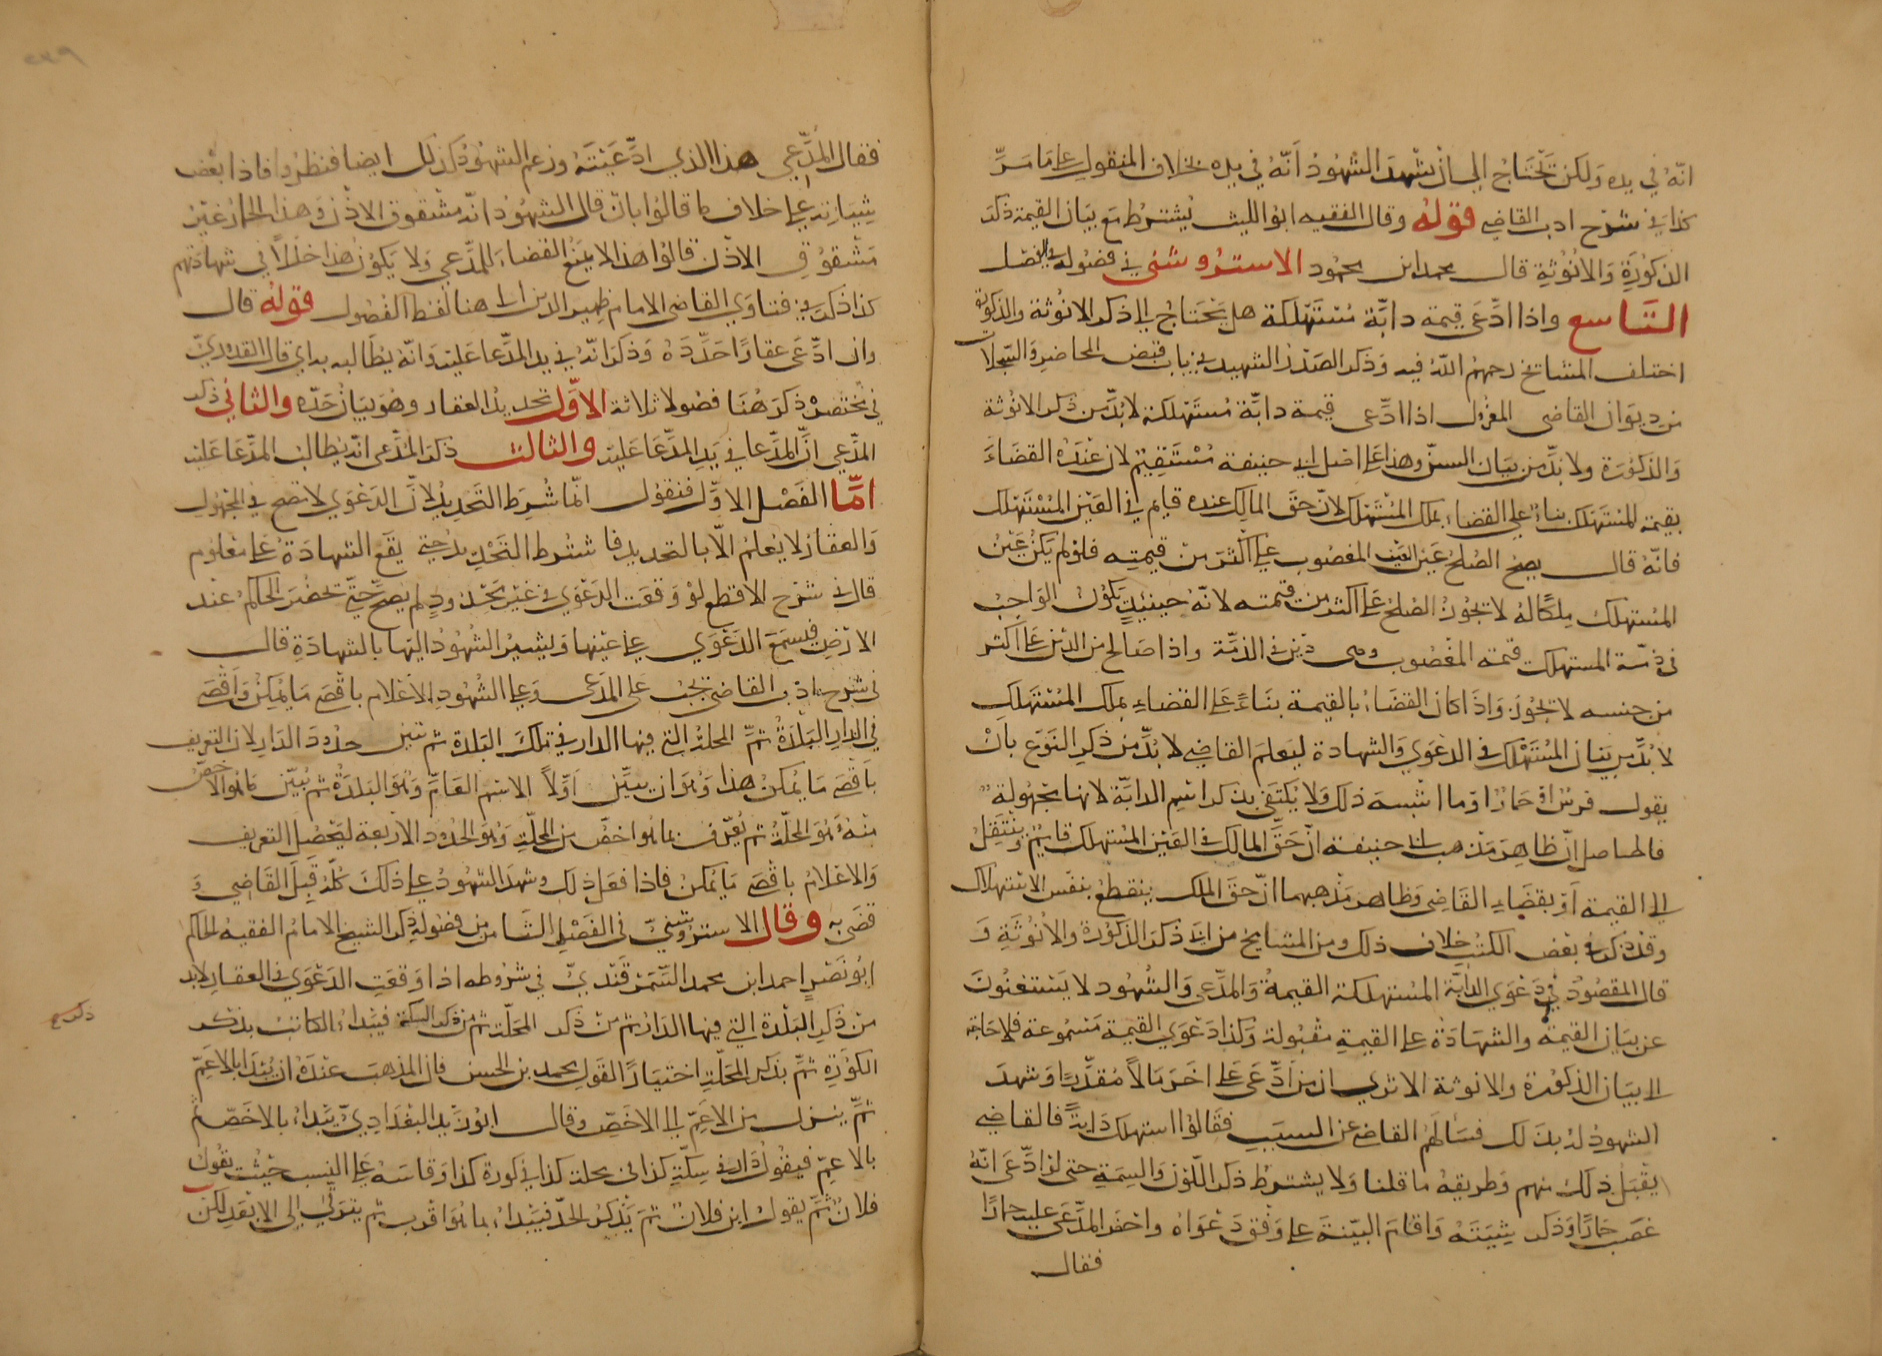 انّه في يده ولكن تحتاج الى ان تشهد الشهود انّه في يده بخلاف المنقول على ما مرّ
كذا في شرح ادب القاضي قوله وقال الفقيه ابو الليث يشترط مع بيان القيمة ذكر
الذكورة والانوثة قال محمد ابن محمود الاستروشنى في فصوله في الفصل
التاسع واذا ادّعى قيمة دابّة مستهلكة هل يحتاج الى ذكر الانوثة والذكورة
اختلف المشايخ رحمهم اللّه فيه وذكر الصدر الشهيد في باب قبض المحاضر والسجلات
من ديوان القاضى المعزول اذا ادّعى قيمة دابّة مستهلكة لا بدّ من ذكر الانوثة
والذكورة ولا بدّ من بيان السنّ وهذا على اصل ابى حنيفة مستقيم لان عنده القضاء
بقيمة المستهلك بناء على القضاء بملك المستهلك لانّ حقّ المالك عنده قايم في العين المستهلك
فانّه قال يصح الصلح عن العين المغصوب على اكثر من قيمته فلو لم يكن عين
المستهلك ملكا له لا يجوز الصلح على اكثر من قيمته لانّه حينئذ يكون الواجب
في ذمّة المستهلك قيمة المغصوب وهى دين في الذمّة واذا صالح من الدين على اكثر
من جنسه لا يجوز واذا كان القضاء بالقيمة بناءً على القضاء بملك المستهلك
لا بدّ من بيان المستهلك في الدعوي والشهادة ليعلم القاضي لا بدّ من ذكر النوع بان
يقول فرس او حمار او ما اشبه ذلك ولا يكتفى بذكر اسم الدابّة لانها مجهولة
فالحاصل انّ ظاهر مذهب ابى حنيفة انّ حقّ المالك في العين المستهلك قايم وينتقل
الى القيمة او بقضاء القاضى وظاهر مذهبهما انّ حقّ الملك ينقطع بنفس الاستهلاك
وقد ذكر في بعض الكتب خلاف ذلك ومن المشايخ من ابى ذكر الذكورة والانوثة و
قال المقصود في دعوي الدابّة المستهلكة القيمة والمدّعى والشهود لا يستغنون
عن بيان القيمة والشهادة على القيمة مقبولة وكذا دعوي القيمة مسموعة فلا حاجة
الى بيان الذكورة والانوثة الا تري ان من ادّعى على اخر مالاً مقدّرا وشهد
الشهود له بذلك فسالهم القاضى عن السبب فقالوا استهلك دابّة فالقاضي
يقبل ذلك منهم وطريقه ما قلنا ولا يشترط ذكر اللّون والسمة حتى لو ادّعى انّه
غصب حمارا وذكر شيته واقام البيّنة على وفق دعواه واحضر المدّعى عليه حمارًا
فقال
فقال المدّعي هذا الذي ادّعيته وزعم الشهود كذلك ايضا فنظروا فاذا بعض
شياته على خلاف ما قالوا بان قال الشهود انّه مشقوق الاذن وهذا الحمار غير
مشقوق الاذن قالوا هذا لا يمنع القضاء للمدّعي ولا يكون هذا خللًا في شهادتهم
كذا ذكر في فتاوي القاضى الامام ظهير الدين الى هنا لفظ الفصول قوله قال
وان ادّعى عقارًا حدّده وذكر انّه في يد المدّعا عليه وانّه يطالبه به اي قال القدوريّ
في مختصره ذكر هنا فصولا ثلاثة الاوّل تحديد العقار وهو بيان حدّه والثاني ذكر
المدّعي انّ المدّعا في يد المدّعا عليه والثالث ذكر المدّعى انّه يطالب المدّعا عليه
امّا الفصل الاوّل فنقول انّما شرط التحديد لانّ الدعوي لا تصح في المجهول
والعقار لا يعلم الّا بالتحديد فاشترط التحديد حتى يقع الشهادة على معلوم
قال في شرح الاقطع لو وقعت الدعوي في غير محدود لم يصح حتّى تحضر الحاكم عند
الارض فيسمع الدعوي على عينها ويشير الشهود اليها بالشهادة قال
في شرح ادب القاضي يجب على المدعى وعلى الشهود الاعلام باقصى ما يمكن واقصى
في الدار البلدة ثمّ المحلة التي فيها الدار في تلك البلدة ثم تبين حدود الدار لان التعريف
باقصى ما يمكن هذا وهو ان يبيّن اوّلاً الاسم العامّ وهو البلدة ثم يبيّن ما هو الاخصّ
منه وهو المحلّة ثم يعرّف بما هو اخصّ من المحلّة وهو الحدود الاربعة ليحصل التعريف
والاعلام باقصى ما يمكن فاذا فعل ذلك وشهد الشهود على ذلك كلّه قبل القاضي و
قضى به وقال الاستروشنيّ في الفصل الثامن من فصوله ذكر الشيخ الامام الفقيه الحاكم
ابو نصر احمد ابن محمد السّمرقنديّ في شروطه اذا وقعت الدعوي في العقار لا بد
من ذكر البلدة التي فيها الدار ثم من ذكر المحلّة ثم من ذكر السكة فيبداء الكاتب بذكر
الكورة ثمّ بذكر المحلّة اختيارًا لقول محمد بن الحسن فان المذهب عنده ان يبدا بالاعمّ
ثمّ ينزل من الاعمّ الى الاخصّ وقال ابو زيد البغداديّ يبداء بالاخصّ ثم
بالاعمّ فيقول دار في سكّة كذا في محلة كذا في كورة كذا وقاسه على النسب حيث يقول
فلان ثمّ يقول ابن فلان ثم يذكر الحدّ فيبداء بما هو اقرب ثم يترقّى الى الابعد لكن